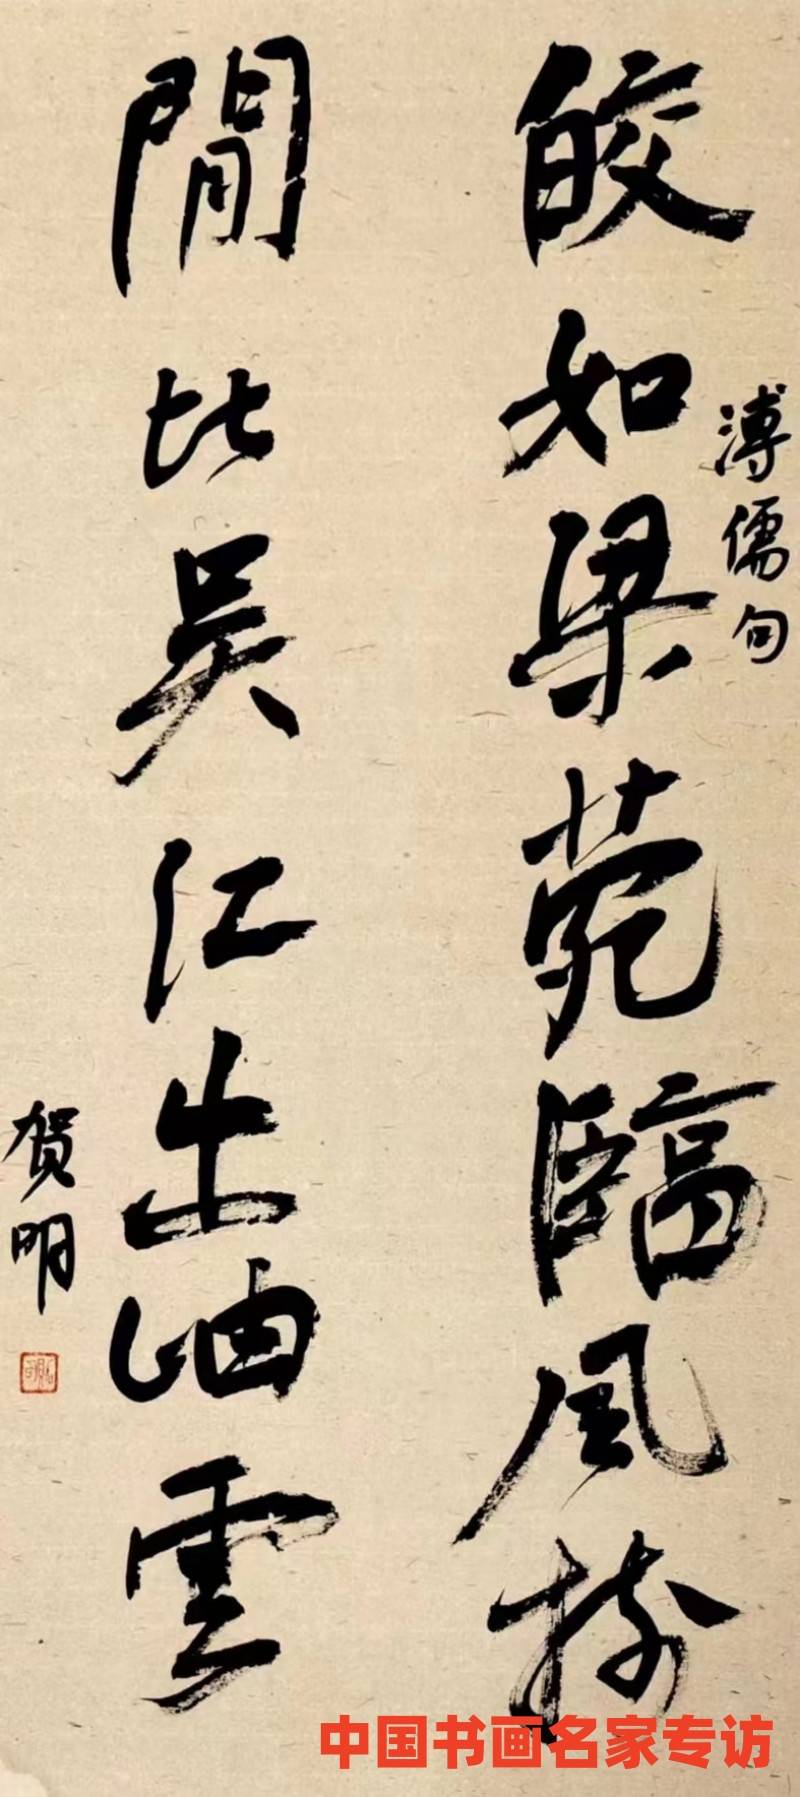 溥儒句
皎如梁苑臨風樹
閒比吴江出岫雲
贺明
中国书画名家专访